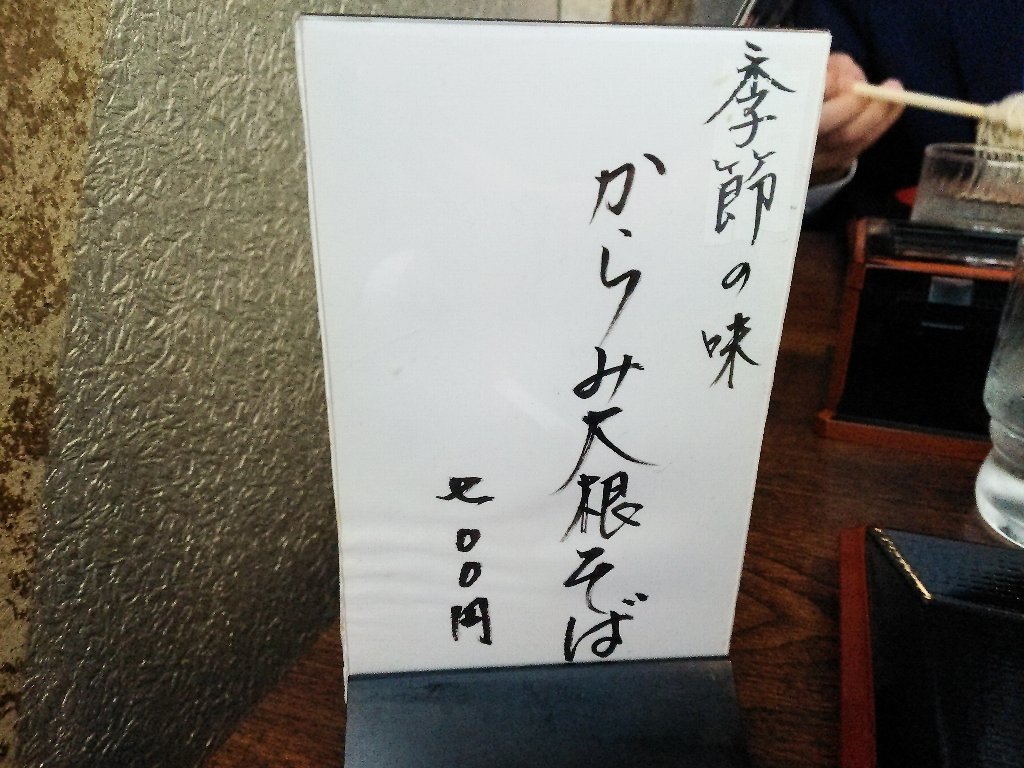 季節の味
からみ大根そば
七00円